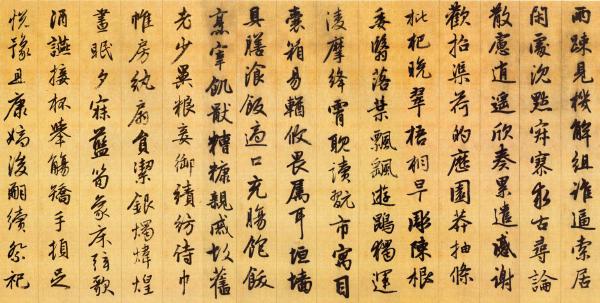 兩疎見機解組誰逼索居
閑處沉默寂寥求古尋論
散慮逍遙欣奏累遣慼謝
歡招渠荷的歷園莽抽條
枇杷晚翠梧桐早彫陳根
委翳落葉飄颻遊鵾獨運
凌摩絳霄耽讀翫市寓目
囊箱易輶攸畏属耳垣墻
具膳飡飯適口充腸飽飫
烹宰飢猒糟糠親戚故舊
老少異粮妾御績紡侍巾
帷房紈扇員潔銀燭煒煌
晝眠夕寐藍笋象床弦歌
酒讌接杯舉觴矯手頓足
悅豫且康嫡後嗣續祭祀